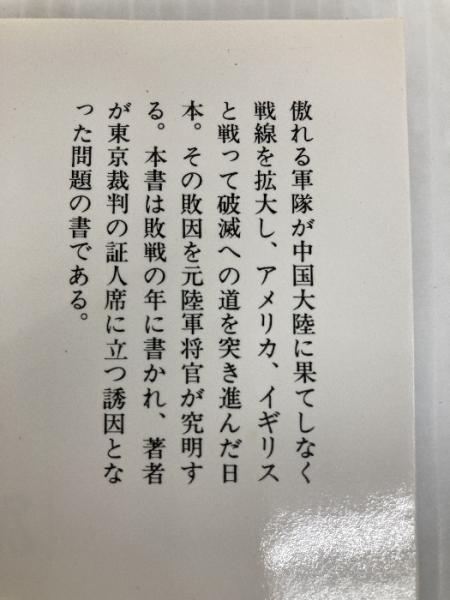 傲れる軍隊が中国大陸に果てしなく
戦線を拡大し、アメリカ、イギリス
と戦って破滅への道を突き進んだ日
本。その敗因を元陸軍将官が究明す
る。本書は敗戦の年に書かれ、著者
が東京裁判の証人席に立つ誘因とな
った問題の書である。